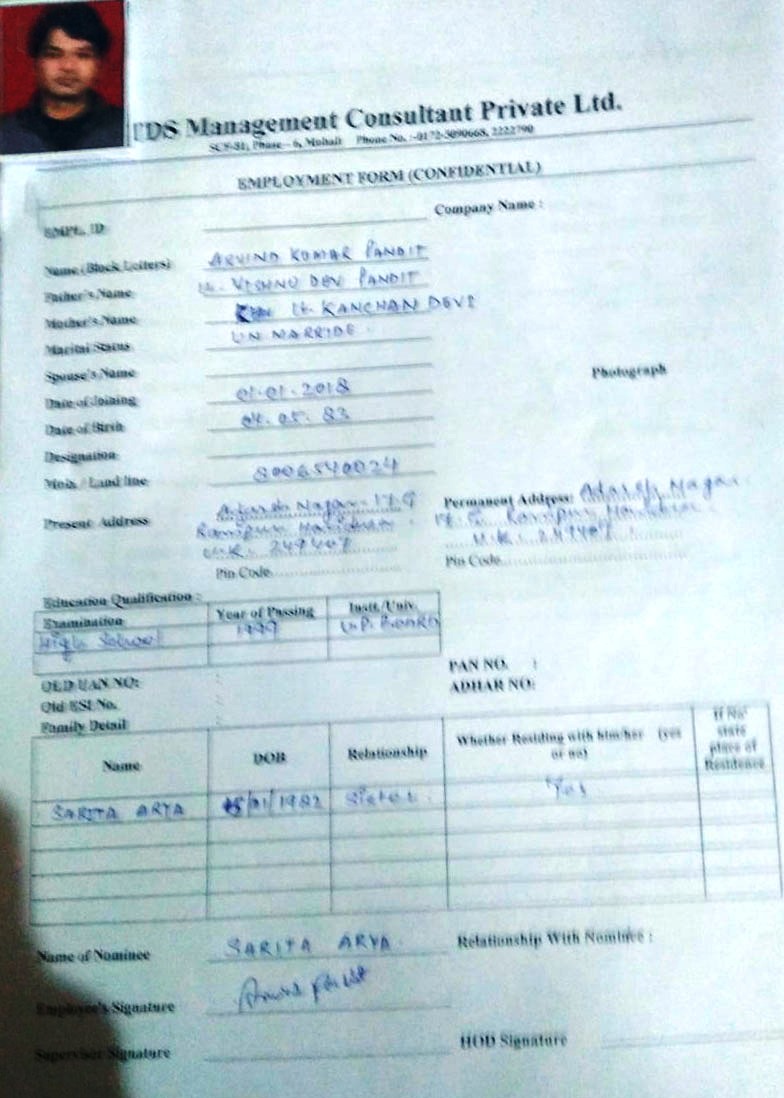 TDS Management Consultant Private Ltd.
SCF-51, Phase – 6, Mohali Phone No. :-0172-5090668, 2222790
EMPLOYMENT FORM (CONFIDENTIAL)
EMPL. ID Company Name :
Name (Block Letters) ARVIND KUMAR PANDIT
Father's Name Lt. VISHNU DEV PANDIT
Mother's Name Lt. KANCHAN DEVI
Marital Status UN MARRIDE.
Spouse's Name
Photograph
Date of Joining 01.01.2018
Date of Birth 04.05.83
Designation
Mob. / Land line 8006540024
Present Address Adarsh Nagar. 17.G Permanent Address: Adarsh Nagar
Ranipur Haridwar. 17.G. Ranipur Haridwar
U.K. 249407 U.K. 249407
Pin Code Pin Code
Education Qualification :
Examination Year of Passing Instt./Univ.
High School 1999 U.P. Board
PAN NO. :
OLD UAN NO: ADHAR NO:
Old ESI No. :
Family Detail
Name DOB Relationship Whether Residing with him/her (yes or no) If No' state place of Residence
SARITA ARYA /01/1982 Sister. Yes
Name of Nominee SARITA ARYA. Relationship With Nominee :
Employee's Signature Arvind Pandit
Supervisor Signature HOD Signature